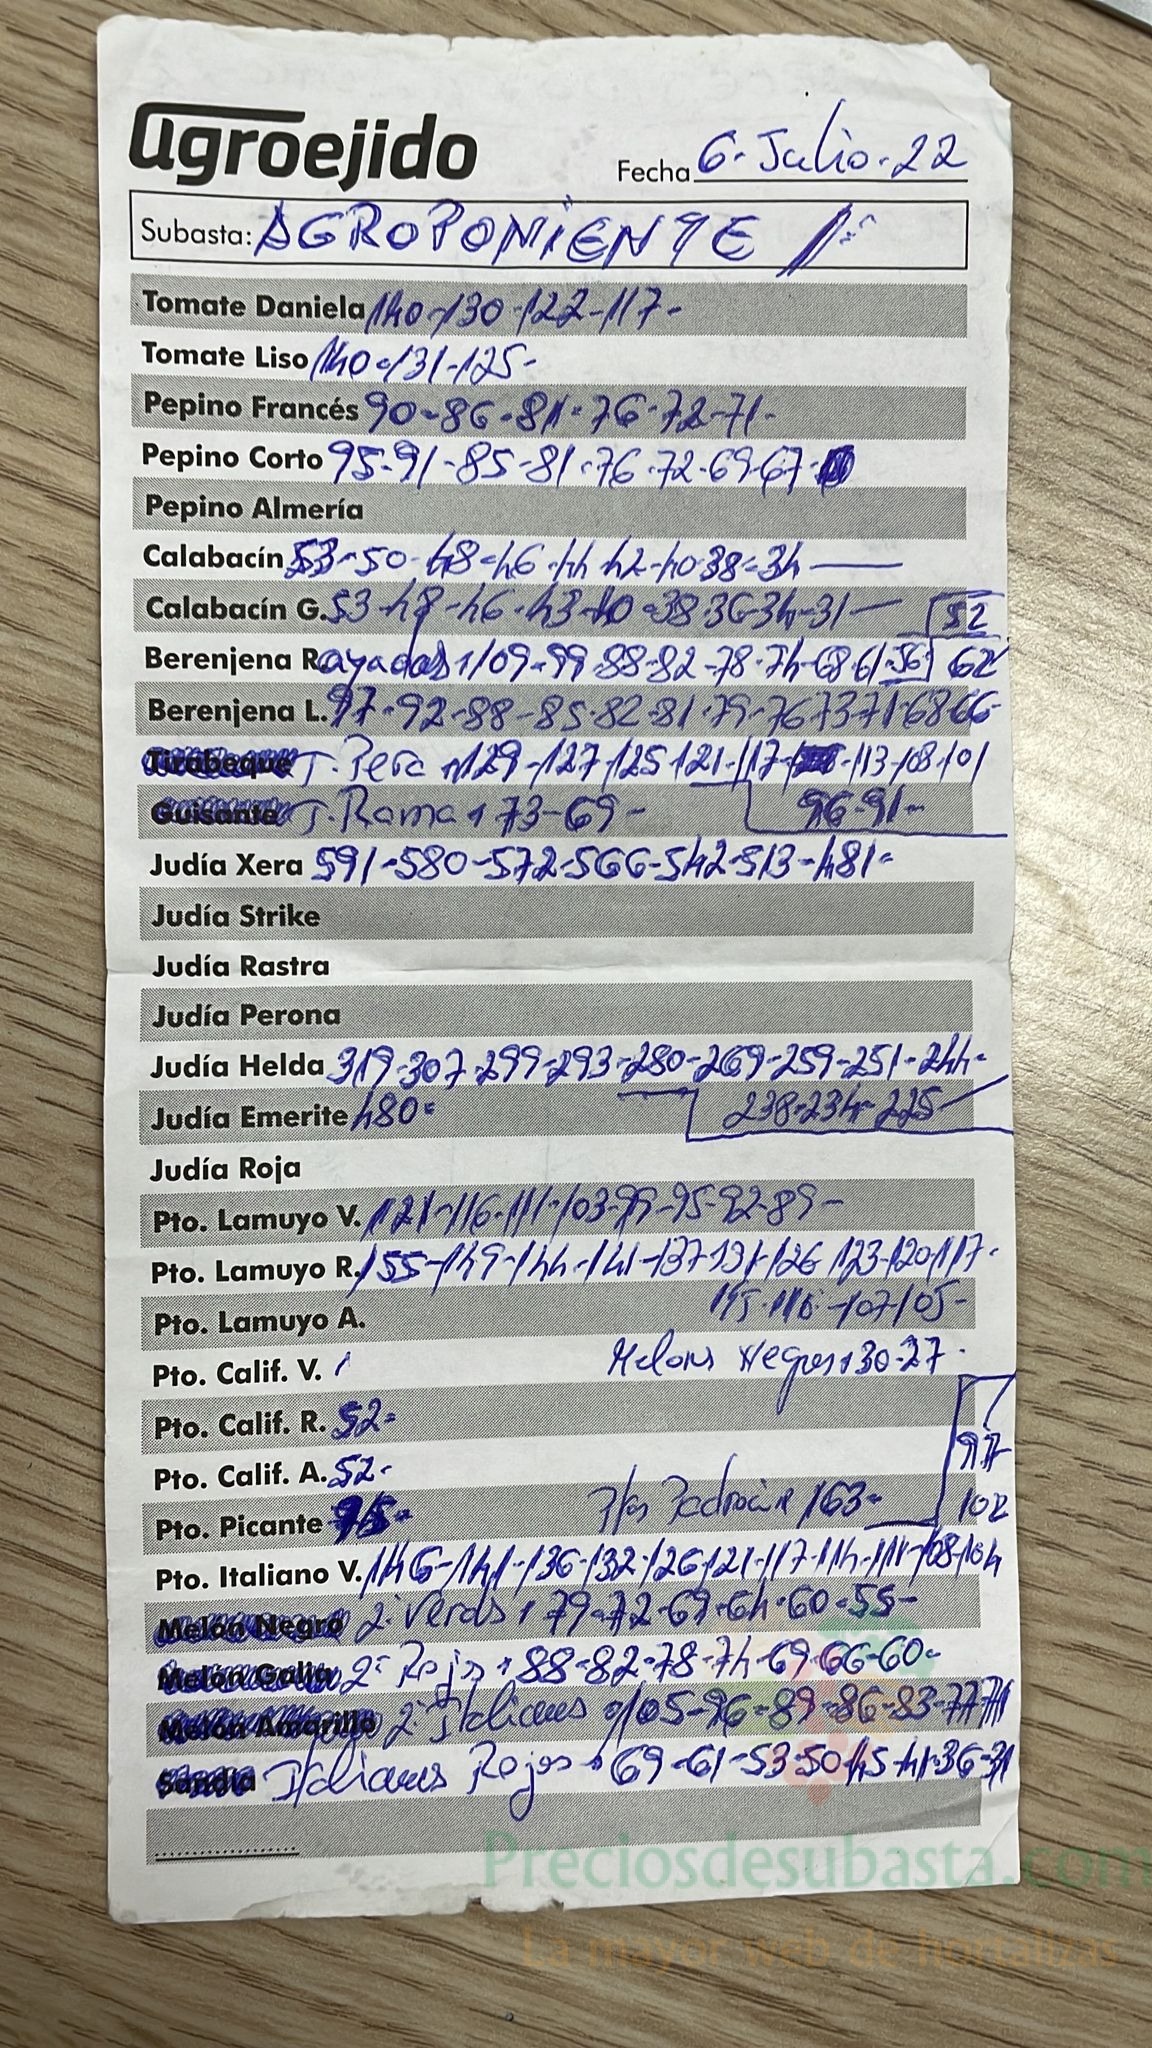 agroejido
Fecha 6-Julio-22
Subasta: AGROPONIENTE
Tomate Daniela 140-130-122-117-
Tomate Liso 140-131-125-
Pepino Francés 90-86-81-76-72-71-
Pepino Corto 95-91-85-81-76-72-69-67-
Pepino Almería
Calabacín 53-50-48-46-44-42-40-38-34
Calabacín G. 53-48-46-43-40-38-36-34-31 52
Berenjena Rayadas 109-99-88-82-78-74-68-61-56 62
Berenjena L. 97-92-88-85-82-81-79-76-73-71-68-66-
Tirabeque T. Pera 129-127-125-121-117-113-108-101
Guisante T. Rama 73-69- 96-91-
Judía Xera 591-580-572-566-542-513-481-
Judía Strike
Judía Rastra
Judía Perona
Judía Helda 319-307-299-293-280-269-259-251-244-
Judía Emerite 480- 238-234-225
Judía Roja
Pto. Lamuyo V. 121-116-111-103-99-95-92-89-
Pto. Lamuyo R. 155-149-144-141-137-131-126-123-120-117-
Pto. Lamuyo A. 115-110-107-105-
Pto. Calif. V. Melons Negros 30-27-
Pto. Calif. R. 52-
Pto. Calif. A. 52- 97
Pto. Picante 75- Ptos Padrón 163- 102
Pto. Italiano V. 146-141-136-132-126-121-117-114-111-108-104
Melón Negro 2ª Verdes 79-72-69-64-60-55-
Melón Galia 2ª Rojos 88-82-78-74-69-66-60-
Melón Amarillo 2ª Italianos 105-96-89-86-83-77-71
Sandía Italianos Rojos 69-61-53-50-45-41-36-31
Preciosdesubasta.com
La mayor web de hortalizas